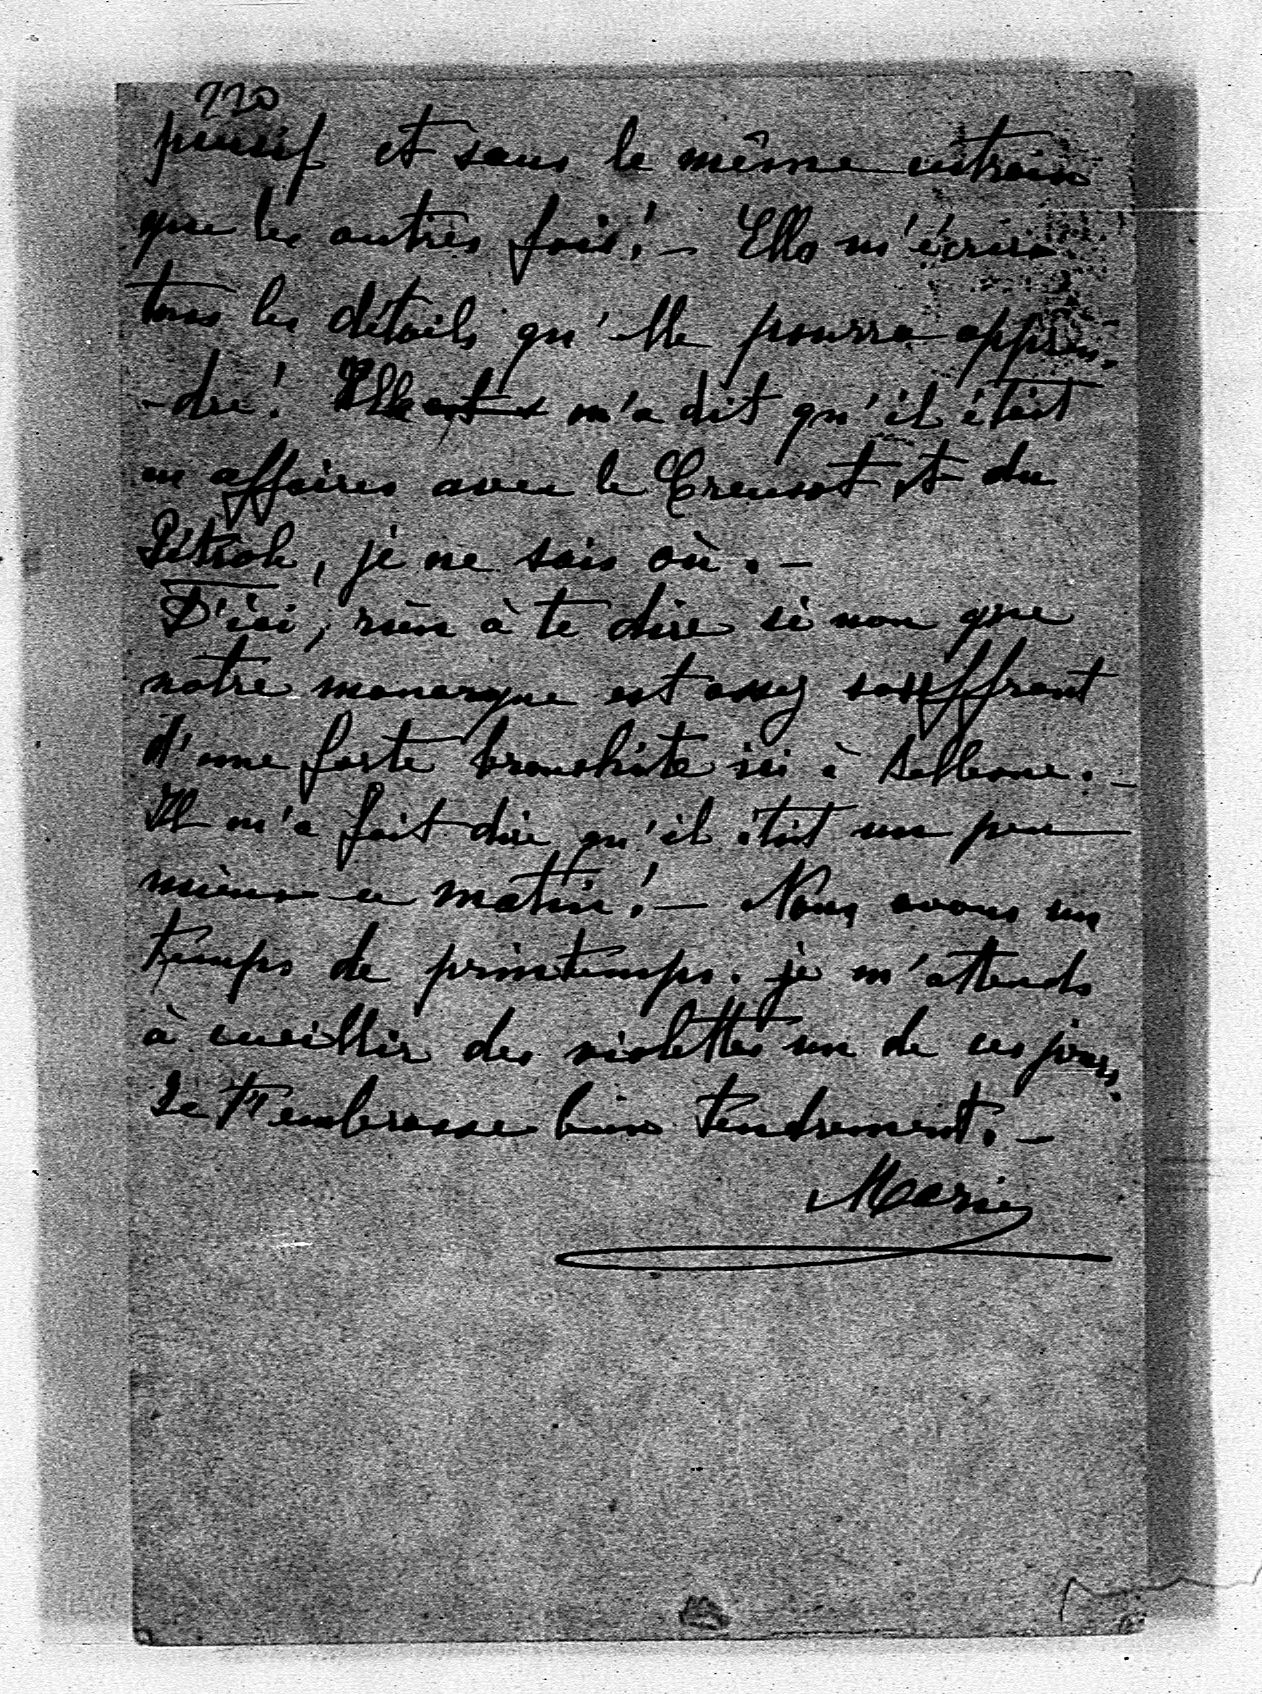 220
pensif et sans le même entrain
que les autres fois! — Elle m'écrira
tous les détails qu'elle pourra appren-
-dre! m'a dit qu'il était
en affaires avec le Creusot et du
Pétrole, je ne sais où. —
D'ici, rien à te dire si non que
notre monarque est assez souffrant
d'une forte bronchite ici à .—
Il m'a fait dire qu'il était un peu
mieux ce matin! — Nous avons un
temps de printemps. je m'attends
à cueillir des violettes un de ces jours.
Je t'embrasse bien tendrement. —
Marie